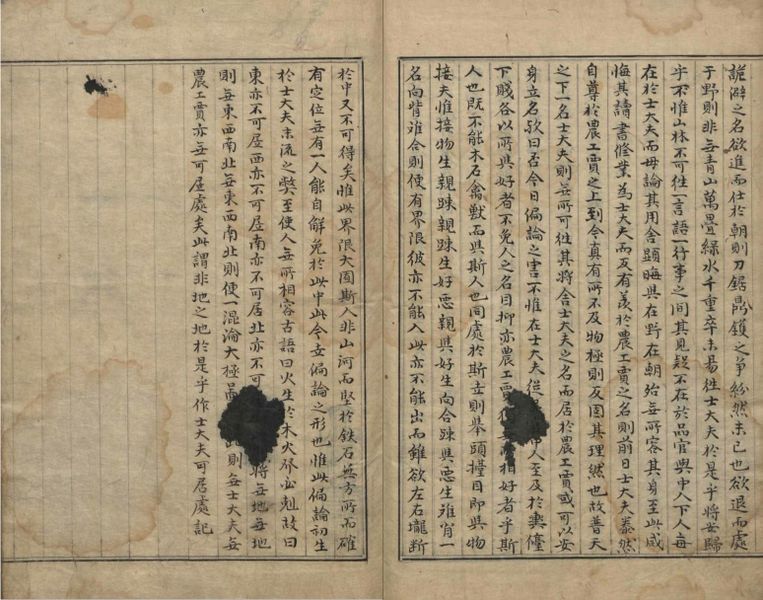 詭僻之名欲進而仕於朝則刀鋸鼎鑊之爭紛然未已也欲退而處
于野則非每青山萬疊綠水千重卒未易徃士大夫於是乎將安歸
乎不惟山林不可徃一言語一行事之間其見疑不在於品官與中人下人每
在於士大夫而毋論其用舍顯晦與在野在朝殆每所容其身至此咸
悔其讀書修業為士大夫而反有羨於農工賈之名則前日士大夫泰然
自尊於農工賈之上到今真有所不及物極則反固其理然也故普天
之下一名士大夫則每所可徃其將舍士大夫之名而居於農工賈或可以安
身立名歟曰否今日偏論之害不惟在士大夫從人至及於輿儓
下賤各以所與好者不免人之名目抑亦農工賈相好者乎斯
人也既不能木石禽獸而與斯人也同處於斯立則舉頭擡目即與物
接夫惟接物生親踈親踈生好惡親與好生向合踈與惡生離背一
名向背離合則便有界限彼亦不能入此亦不能出而雖欲左右壟斷
於中又不可得矣惟此界限大圍斯人非山河而堅於鉄石無方所而確
有定位每有一人能自解免於此中此今世偏論之形也惟此偏論初生
於士大夫末流之獘至使人每所相容古語曰火生於木火發必剋故曰
東亦不可居西亦不可居南亦不可居北亦不可將每地每地
則每東西南北每東西南北則便一混淪大極則每士大夫每
農工賈亦每可居處矣此謂非地之地於是乎作士大夫可居處記